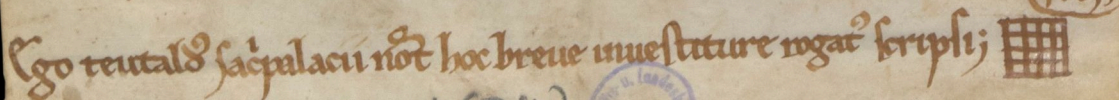 Ego teutald᾿ sac̓palacii not̓ hoc breue inuestiture rogat᾿ scripsi;
u. Landes